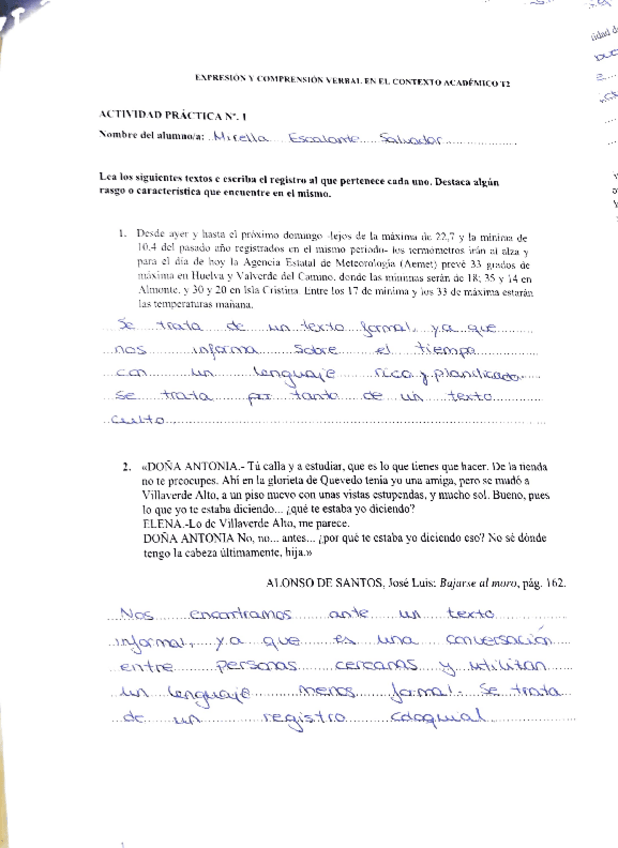 EXPRESIÓN Y COMPRENSIÓN VERBAL EN EL CONTEXTO ACADÉMICO T2
ACTIVIDAD PRÁCTICA Nº. 1
Nombre del alumno/a: Mirella Escalante Salvador
Lea los siguientes textos e escriba el registro al que pertenece cada uno. Destaca algún
rasgo o característica que encuentre en el mismo.
1. Desde ayer y hasta el próximo domingo -lejos de la máxima de 22,7 y la mínima de
10,4 del pasado año registrados en el mismo periodo- los termómetros irán al alza y
para el día de hoy la Agencia Estatal de Meteorología (Aemet) prevé 33 grados de
máxima en Huelva y Valverde del Camino, donde las mínimas serán de 18; 35 y 14 en
Almonte, y 30 y 20 en Isla Cristina. Entre los 17 de mínima y los 33 de máxima estarán
las temperaturas mañana.
Se trata de un texto formal, ya que
nos informa sobre el tiempo
con un lenguaje rico y planificado.
Se trata por tanto de un texto
culto
2. «DOÑA ANTONIA.- Tú calla y a estudiar, que es lo que tienes que hacer. De la tienda
no te preocupes. Ahí en la glorieta de Quevedo tenía yo una amiga, pero se mudó a
Villaverde Alto, a un piso nuevo con unas vistas estupendas, y mucho sol. Bueno, pues
lo que yo te estaba diciendo... ¿qué te estaba yo diciendo?
ELENA.-Lo de Villaverde Alto, me parece.
DOÑA ANTONIA No, no... antes... ¿por qué te estaba yo diciendo eso? No sé dónde
tengo la cabeza últimamente, hija.»
ALONSO DE SANTOS, José Luis: Bajarse al moro, pág. 162.
Nos encontramos ante un texto
informal, ya que es una conversación
entre personas cercanas y utilizan
un lenguaje menos formal. Se trata
de un registro coloquial
1